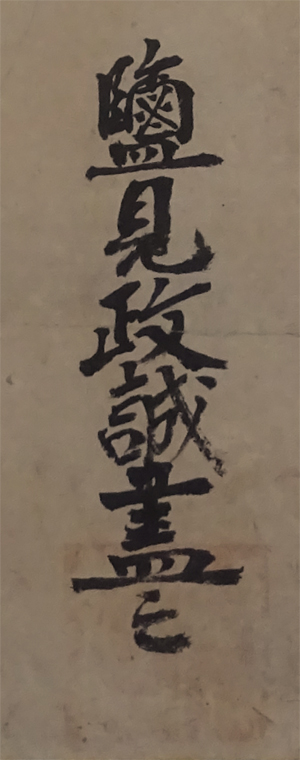 鹽見政誠畫之